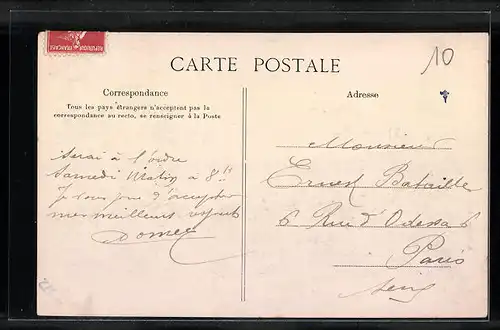 REPUBLIQUE FRANÇAISE
10
CARTE POSTALE
Correspondance
Tous les pays étrangers n'acceptent pas la
correspondance au recto, se renseigner à la Poste
Adresse
Serai à l'ordre
Samedi Matin à 8h
Je vous prie d'accepter
mes meilleurs
Monsieur
Ernest Bataille
6 Rue d'Odessa 6
Paris